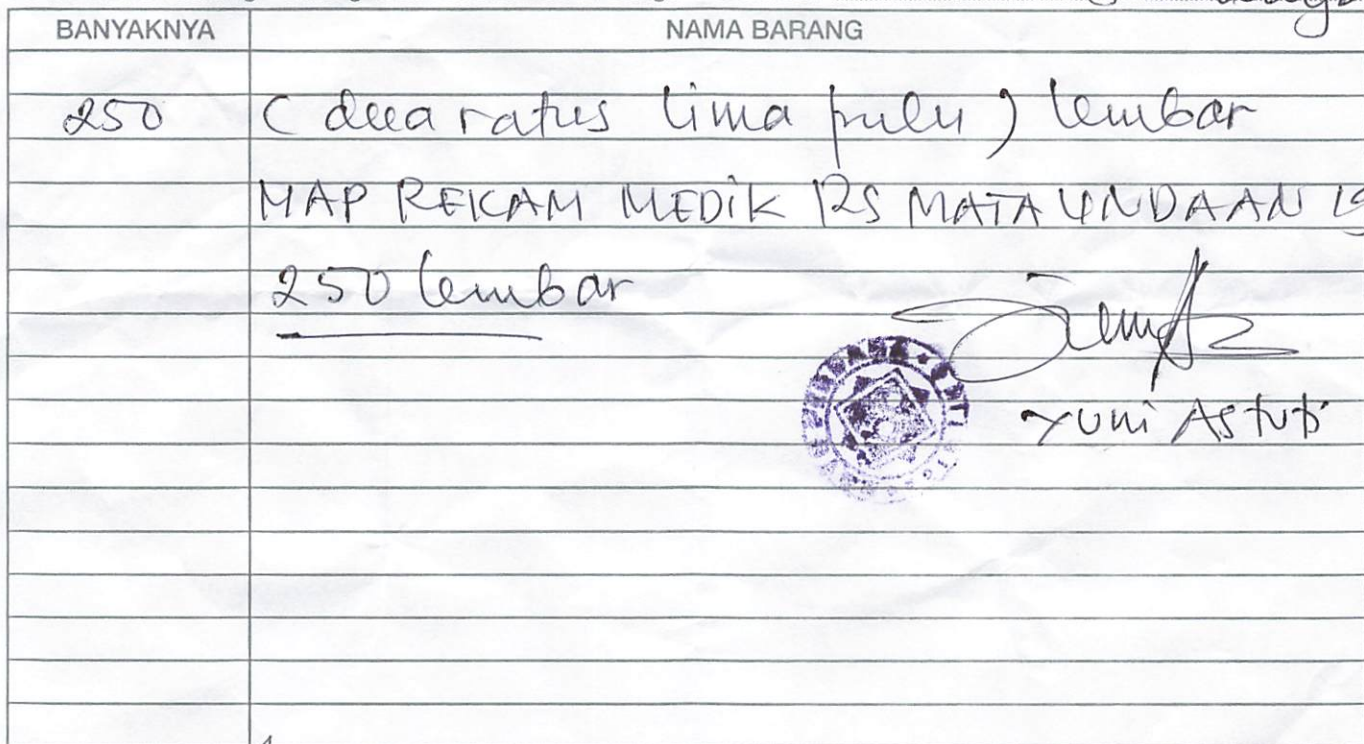 BANYAKNYA NAMA BARANG
250 (dua ratus lima pulu) lembar
MAP REKAM MEDIK RS MATA UNDAAN
250 lembar
Yuni Astuti